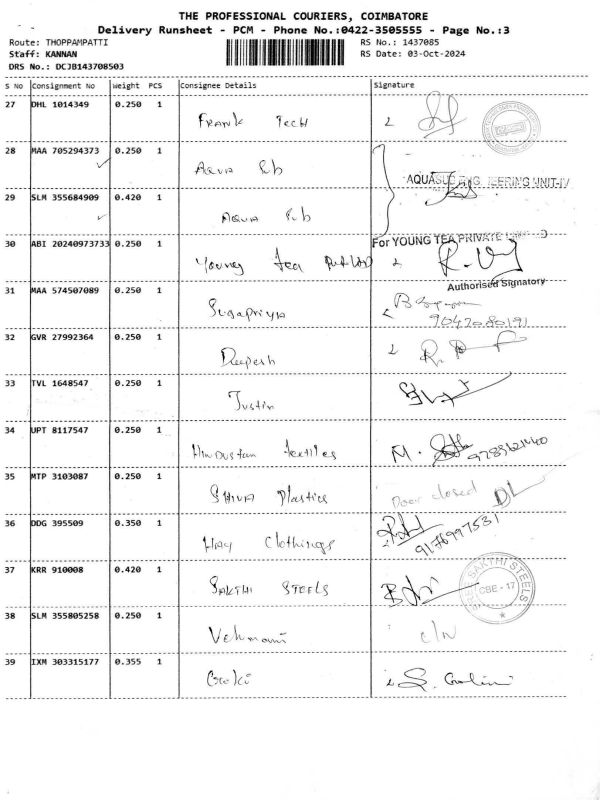 THE PROFESSIONAL COURIERS, COIMBATORE
Delivery Runsheet - PCM - Phone No.:0422-3505555 - Page No.:3
Route: THOPPAMPATTI RS No.: 1437085
Staff: KANNAN RS Date: 03-Oct-2024
DRS No.: DCJB143708503
S No Consignment No Weight PCS Consignee Details Signature
27 DHL 1014349 0.250 1
Frank Tech
28 MAA 705294373 0.250 1
Aqua Sub
AQUASUB ENGINEERING UNIT-IV
29 SLM 355684909 0.420 1
Aqua Sub
30 ABI 20240973733 0.250 1 For YOUNG TEA PRIVATE LIMITED
Young Tea Pvt Ltd
Authorised Signatory
31 MAA 574507089 0.250 1
Sugapriya
9042080191
32 GVR 27992364 0.250 1
Deepesh
33 TVL 1648547 0.250 1
Justin
34 UPT 8117547 0.250 1
Hindustan textiles M.
35 MTP 3103087 0.250 1
Shiva Plastics Door closed DL
36 DDG 395509 0.350 1
Hay Clothings 9176997531
37 KRR 910008 0.420 1
SAKTHI STEELS
SREE SAKTHI STEELS
CBE - 17
38 SLM 355805258 0.250 1
Velumani C/N
39 IXM 303315177 0.355 1